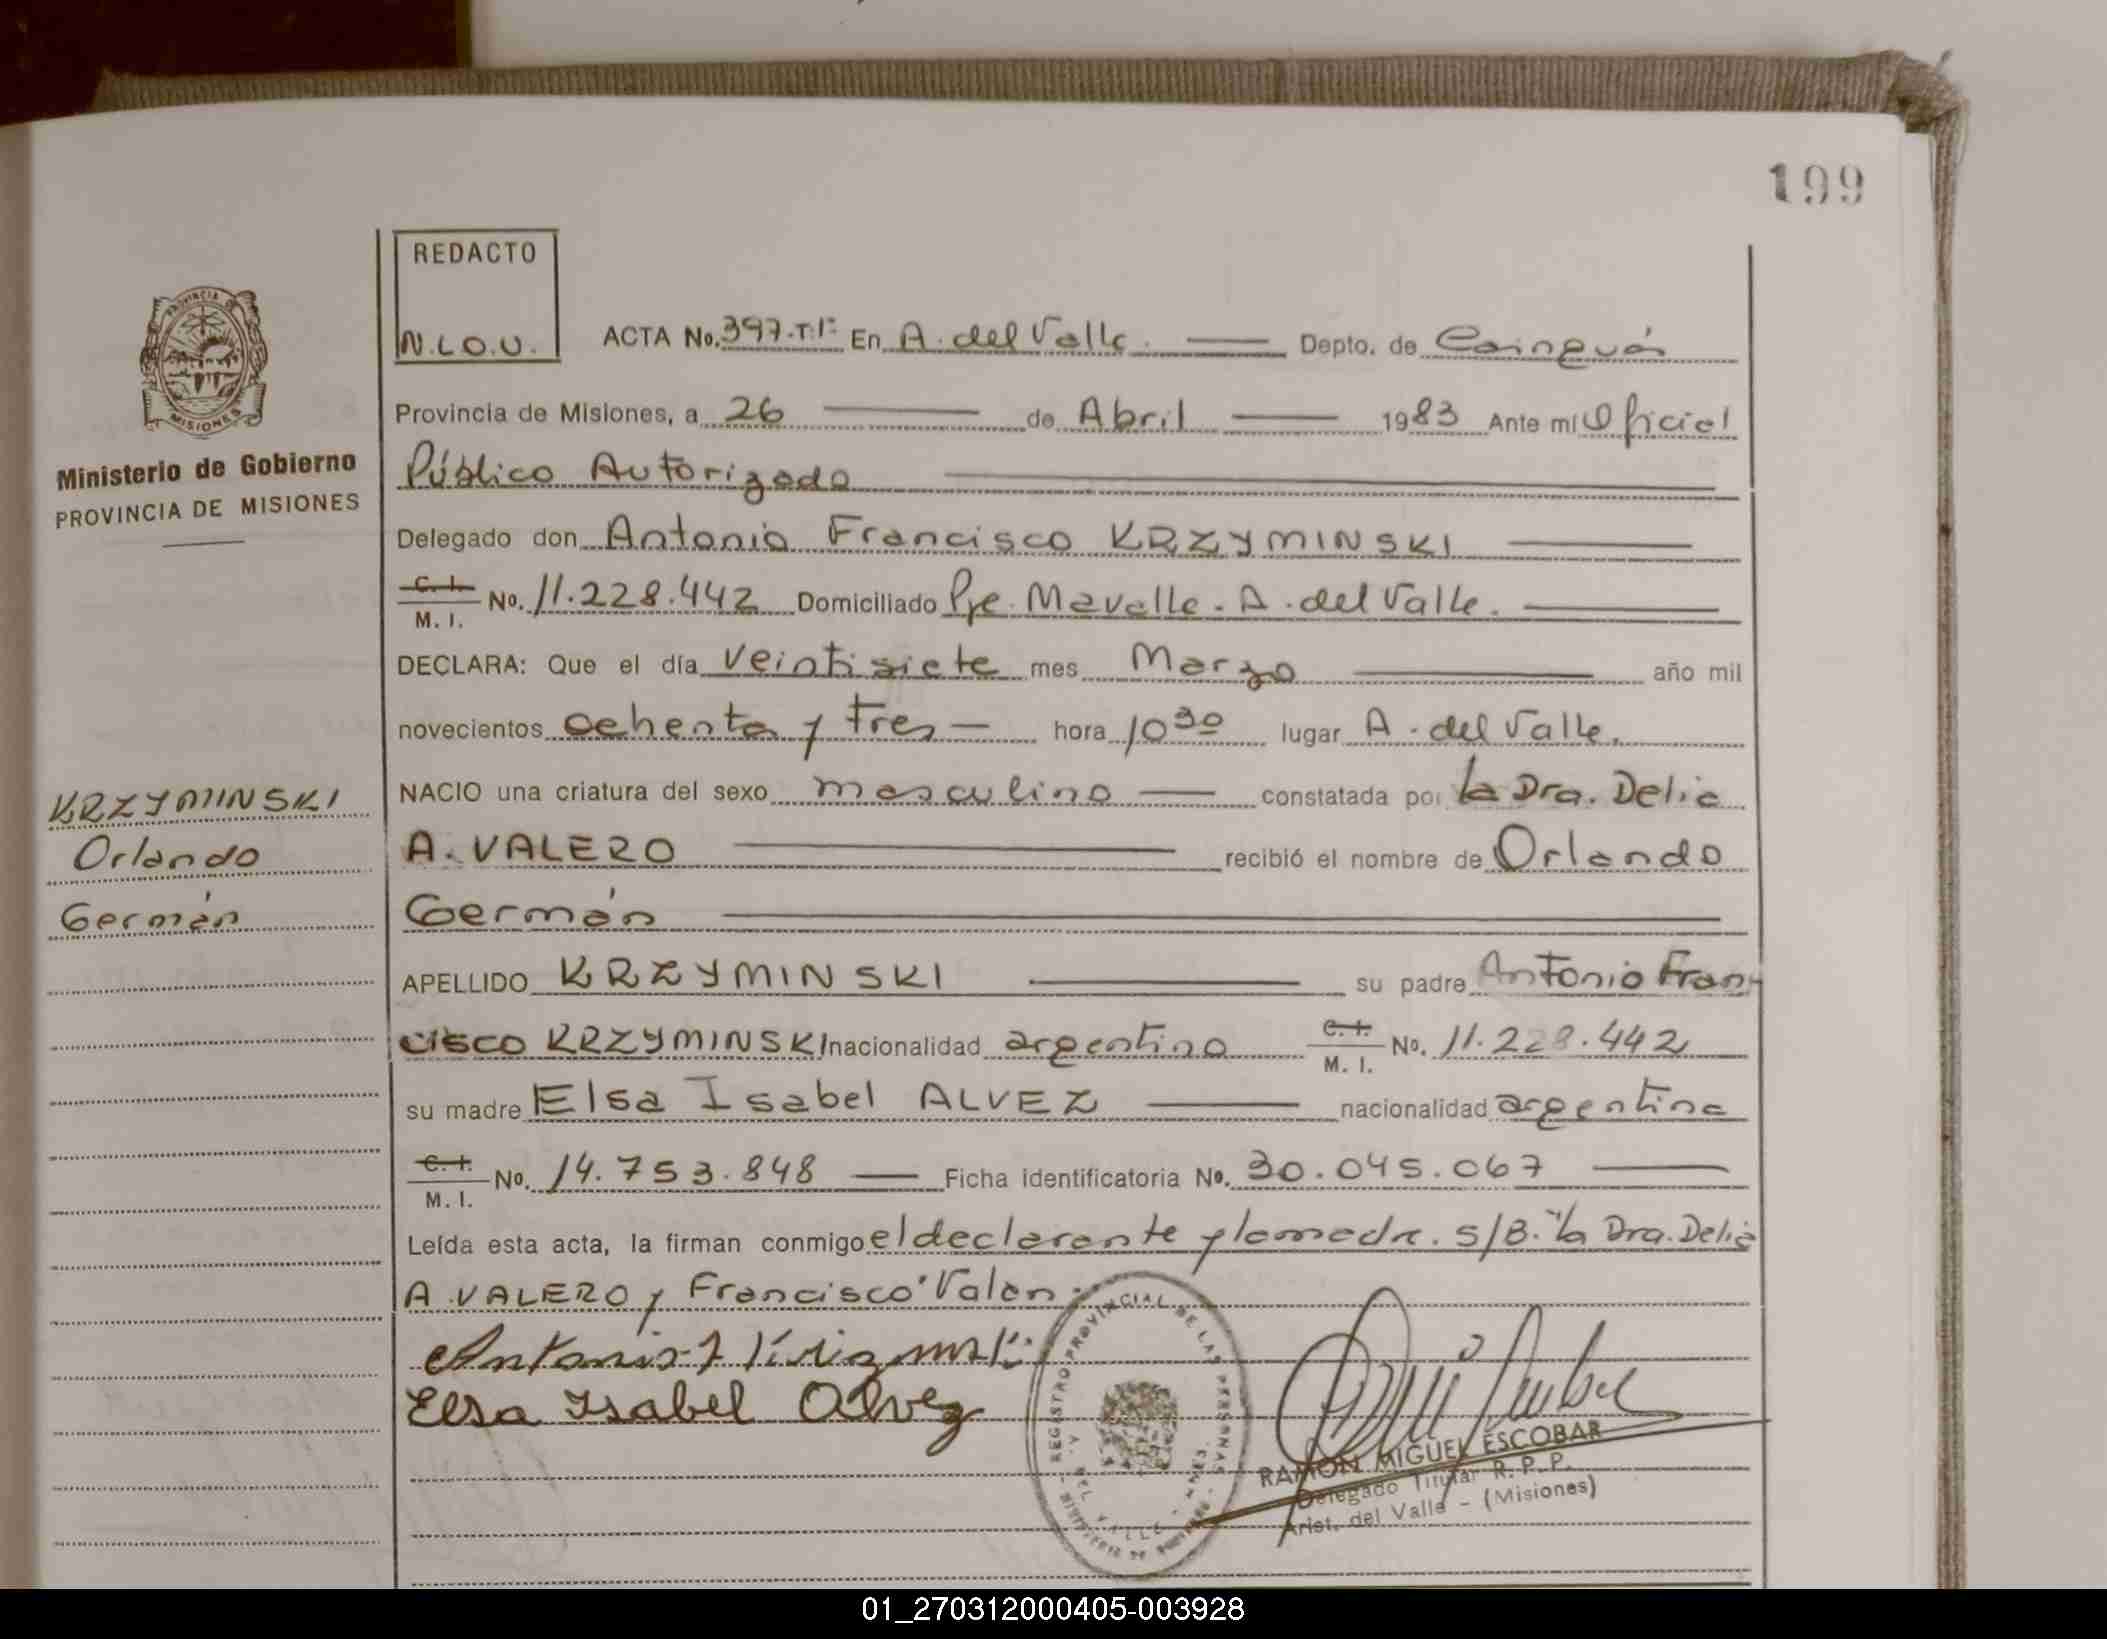 199
REDACTO
N.L.O.U.
ACTA No. 397-T.1º En A. del Valle. Depto. de Cainguás
Provincia de Misiones, a 26 de Abril 1983 Ante mí Oficial
Público Autorizado
Delegado don Antonio Francisco KRZYMINSKI
C. I. M. I. No. 11.228.442 Domiciliado Pje. Mavalle. A. del Valle.
DECLARA: Que el día veintisiete mes Marzo año mil
novecientos ochenta y tres hora 10 30 lugar A. del Valle.
NACIO una criatura del sexo masculino constatada por la Dra. Delia
A. VALERO recibió el nombre de Orlando
Germán
APELLIDO KRZYMINSKI su padre Antonio Fran-
cisco KRZYMINSKI nacionalidad argentino C. I. M. I. No. 11.228.442
su madre Elsa Isabel ALVEZ nacionalidad argentina
C. I. M. I. No. 14.753.848 Ficha identificatoria No. 30.045.067
Leída esta acta, la firman conmigo el declarante y la madre. S/B. "la Dra. Delia
A. VALERO y Francisco" Valen.
Elsa Isabel Alvez
REGISTRO PROVINCIAL DE LAS PERSONAS
RAMON MIGUEL ESCOBAR
Delegado Titular R. P. P.
Arist. del Valle - (Misiones)
PROVINCIA DE
MISIONES
Ministerio de Gobierno
PROVINCIA DE MISIONES
KRZYMINSKI
Orlando
Germán
01_270312000405-003928